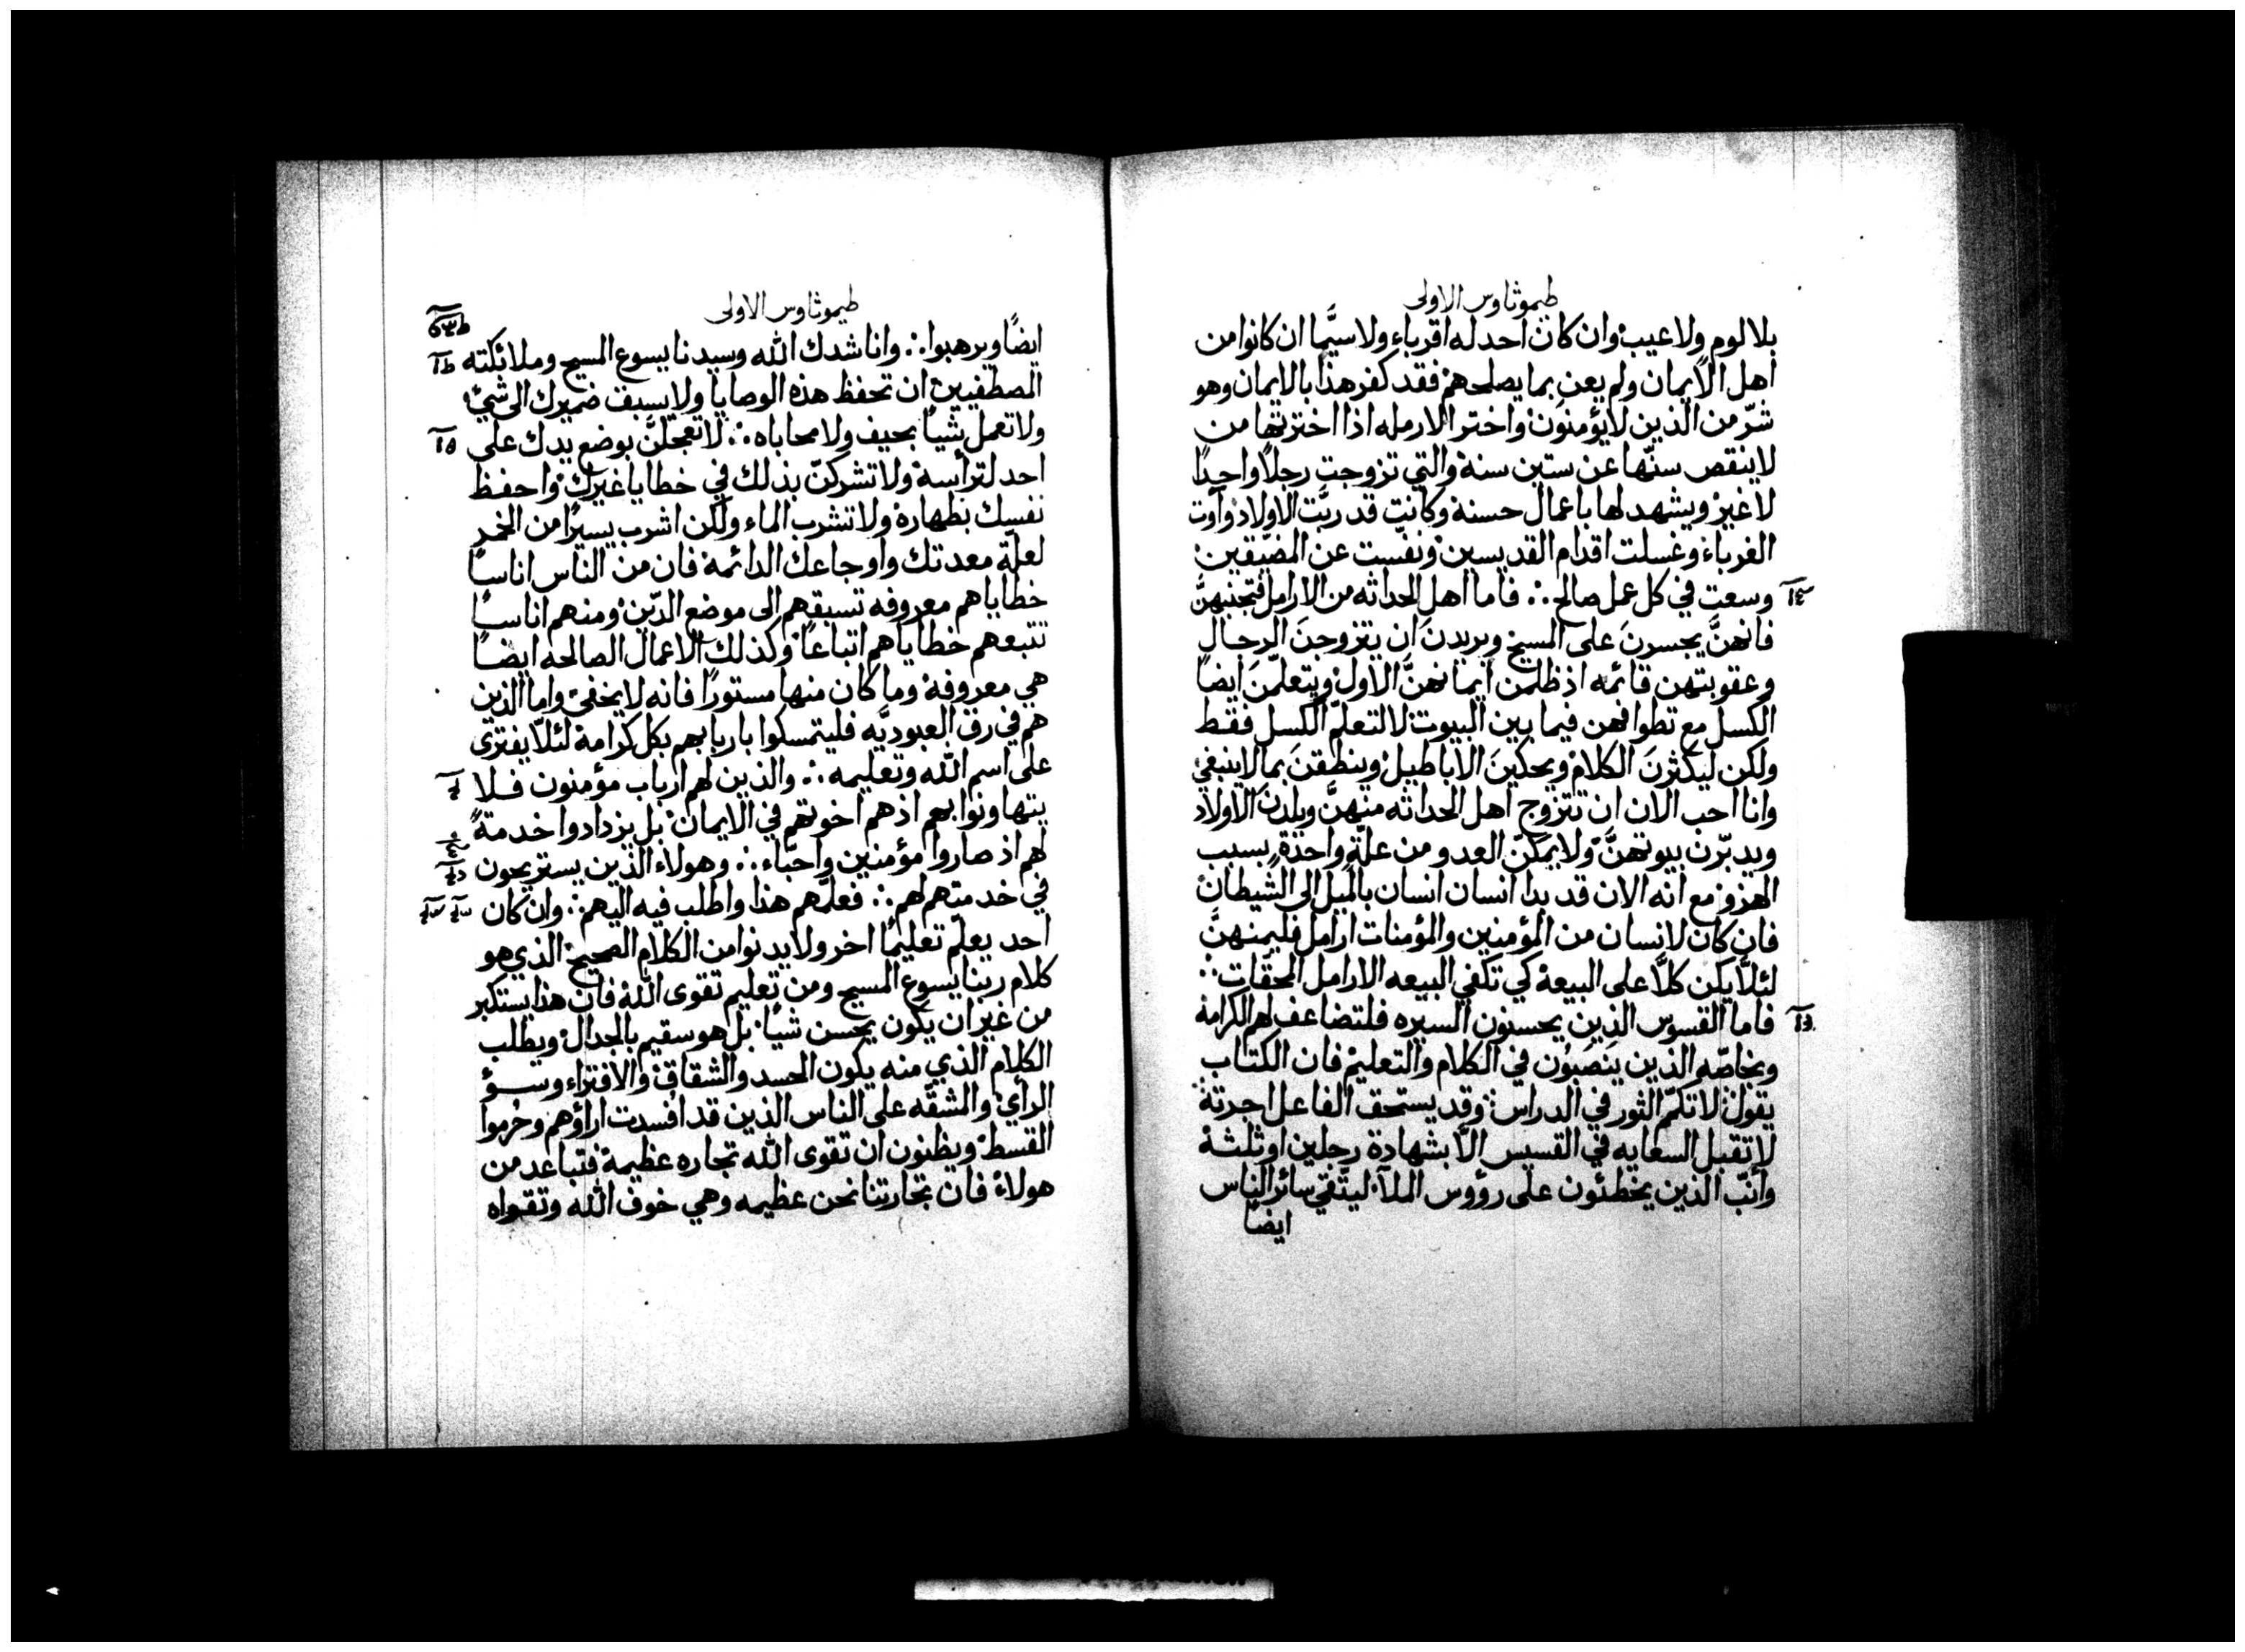 طيموثاوس الاولى
بلا لوم ولا عيب وان كان احد له اقرباء ولا سيَّما ان كانوا من
اهل الايمان ولم يعن بما يصلحهم فقد كفر هذا بالايمان وهو
شرّ من الذين لا يؤمنون واختر الارمله اذا اخترتها من
لا ينقص سنّها عن ستين سنة والتي تزوجت رجلاً واحداً
لا غير ويشهد لها باعمال حسنة وكانت قد ربَّت الاولاد وآوت
الغرباء وغسلت اقدام القديسين ونفّست عن المضيّقين
وسعت في كل عمل صالح ∴ فاما اهل الحداثه من الارامل فتجنبهنَّ
فانهنَّ يجسرنَ على المسيح ويريدنَ ان يتزوجنَ الرجال
وعقوبتهن قائمه اذ ظلمن ايمانهنَّ الاول ويتعلّمنَ ايضاً
الكسل مع تطوافهن فيما بين البيوت لا لتعلّم الكسل فقط
ولكن ليكثرنَ الكلام ويحكينَ الاباطيل وينطقنَ بما لا ينبغي
وانا احب الان ان تتزوج اهل الحداثه منهنَّ ويلدن الاولاد
ويدبّرن بيوتهنَّ ولا يمكنّ العدو من علّةٍ واحدة بسبب
الهزو مع انه الان قد بدا انسان انسان بالميل الى الشيطان
فان كان لانسان من المؤمنين والمؤمنات ارامل فليمنهنَّ
لئلّا يكن كلاًّ على البيعة كي تكفي البيعه الارامل المحقّات ∴
فاما القسوس الذين يحسنون السيره فلتضاعف لهم الكرامة
وبخاصّه الذين ينصبُون في الكلام والتعليم فان الكتاب
يقول لا تكمّ الثور في الدراس وقد يستحق الفاعل اجرتهُ
لا تقبل السعايه في القسيس الّا بشهادة رجلين او ثلثة
وانّب الذين يخطئون على رؤوس الملآ ليتّقي سائر الناس
ايضاً
طيموثاوس الاولى
ايضاً ويرهبوا ∴ وانا شدك الله وسيدنا يسوع المسيح وملائكته
المصطفيين ان تحفظ هذه الوصايا ولا يسبق ضميرك الى شيء
ولا تعمل شيئاً بحيف ولا محاباه ∴ لا تعجلنَّ بوضع يدك على
احد لترأسة ولا تشركنّ بذلك في خطايا غيرك واحفظ
نفسك بطهارة ولا تشرب الماء ولكن اشرب يسيرًا من الخمر
لعلّة معدتك واوجاعك الدائمة فان من الناس اناساً
خطاياهم معروفه تسبقهم الى موضع الدّين ومنهم اناساً
تتبعهم خطاياهم اتباعاً وكذلك الاعمال الصالحه ايضاً
هي معروفة وما كان منها مستوراً فانه لا يخفى واما الذين
هم في رق العبوديَّه فليتمسكوا باربابهم بكل كرامة لئلّا يفترى
على اسم الله وتعليمه ∴ والذين لهم ارباب مؤمنون فلا
يتهاونوا بهم اذ هم اخوتهم في الايمان بل يزدادوا خدمةً
لهم اذ صاروا مؤمنين واحبّاء ∴ وهولاء الذين يستريحون
في خدمتهم لهم ∴ فعلّمهم هذا واطلب فيه اليهم ∴ وان كان
احد يعلّم تعليمًا اخر ولا يدنوا من الكلام الصحيح الذي هو
كلام ربنا يسوع المسيح ومن تعليم تقوى الله فان هذا يستكبر
من غير ان يكون يحسن شيئاً بل هو سقيم بالجدال ويطلب
الكلام الذي منه يكون الحسد والشقاق والافتراء وسوُ
الرأي والمشقّه على الناس الذين قد افسدت اراؤهم وحُرموا
القسط ويظنون ان تقوى الله تجاره عظيمة فتباعد من
هولاء فان تجارتنا نحن عظيمه وهي خوف الله وتقواه